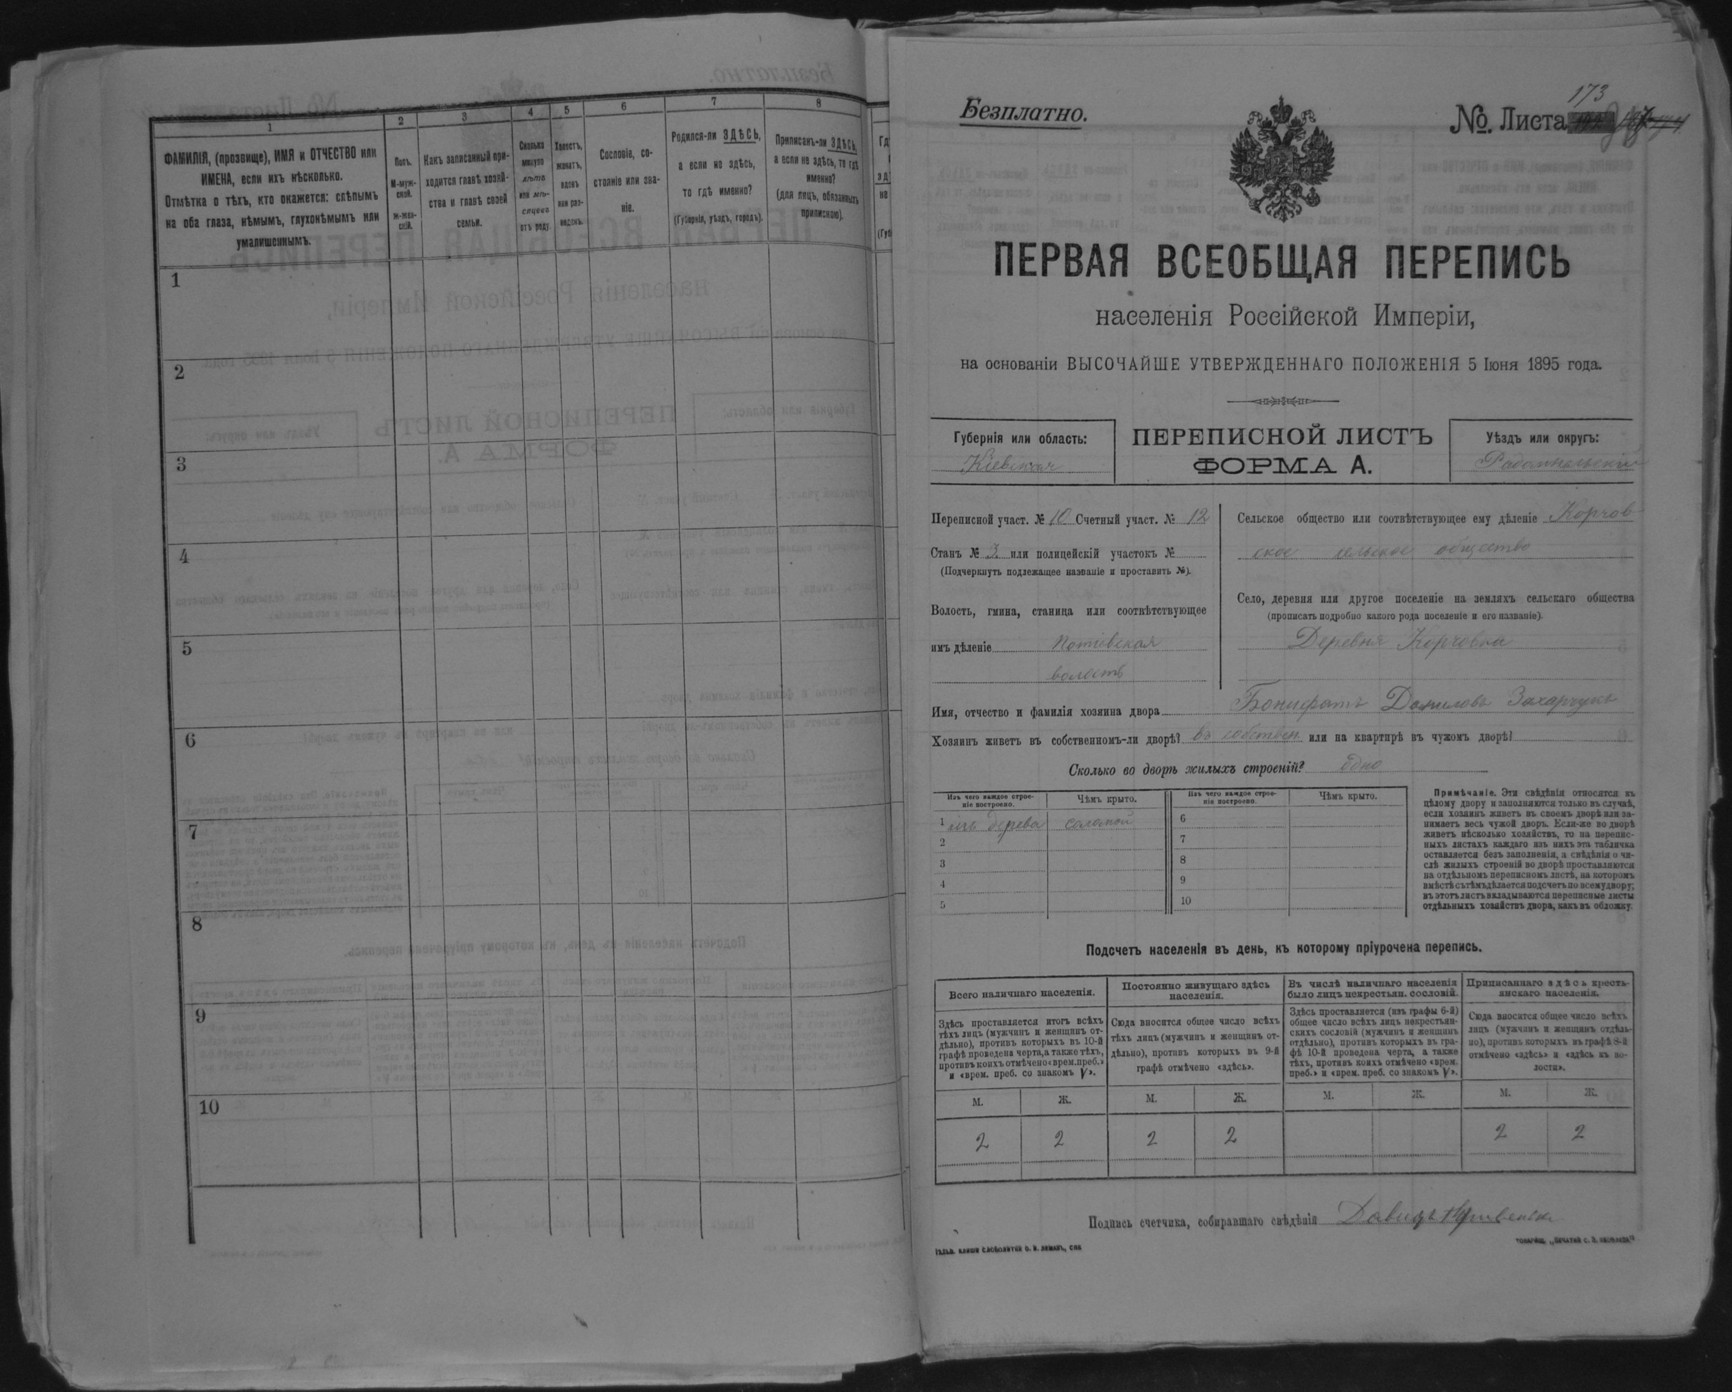 1
2
3
4
5
6
7
8
ФАМИЛІЯ, (прозвище), ИМЯ и ОТЧЕСТВО или
ИМЕНА, если ихъ нѣсколько.
Отмѣтка о тѣхъ, кто окажется: слѣпымъ
на оба глаза, нѣмымъ, глухонѣмымъ или
умалишеннымъ.
Полъ.
М-муж-
ской.
ж-жен-
скій.
Какъ записанный при-
ходится главѣ хозяй-
ства и главѣ своей
семьи.
Сколько
минуло
лѣтъ
или мѣ-
сяцевъ
отъ роду
Холостъ,
женатъ,
вдовъ
или раз-
веденъ.
Сословіе, со-
стояніе или зва-
ніе.
Родился-ли ЗДѢСЬ,
а если не здѣсь,
то гдѣ именно?
(Губернія, уѣздъ, городъ).
Приписанъ-ли ЗДѢСЬ,
а если не здѣсь, то гдѣ
именно?
(для лицъ, обязанныхъ
припискою).
1
2
3
4
5
6
7
8
9
10
Безплатно.
173
№. Листа
ПЕРВАЯ ВСЕОБЩАЯ ПЕРЕПИСЬ
населенія Россійской Имперіи,
на основаніи ВЫСОЧАЙШЕ УТВЕРЖДЕННАГО ПОЛОЖЕНІЯ 5 Іюня 1895 года.
Губернія или область:
Кіевская
ПЕРЕПИСНОЙ ЛИСТЪ
ФОРМА А.
Уѣздъ или округъ:
Радомысльскій
Переписной участ. № 10 Счетный участ. № 12
Станъ № 3 или полицейскій участокъ №
(Подчеркнуть подлежащее названіе и проставить №).
Волость, гмина, станица или соотвѣтствующее
имъ дѣленіе Потіевская
волость
Сельское общество или соотвѣтствующее ему дѣленіе Корчов
ское сельское общество
Село, деревня или другое поселеніе на земляхъ сельскаго общества
(прописать подробно какого рода поселеніе и его названіе).
Деревня Корчовка
Имя, отчество и фамилія хозяина двора Бонифатъ Даниловъ Захарчукъ
Хозяинъ живетъ въ собственномъ-ли дворѣ? въ собствен или на квартирѣ въ чужомъ дворѣ?
Сколько во дворѣ жилыхъ строеній? одно
Изъ чего каждое строе-
ніе построено.
Чѣмъ крыто.
Изъ чего каждое строе-
ніе построено.
Чѣмъ крыто.
1 изъ дерева соломой
2
3
4
5
6
7
8
9
10
Примѣчаніе. Эти свѣдѣнія относятся къ
цѣлому двору и заполняются только въ случаѣ,
если хозяинъ живетъ въ своемъ дворѣ или за-
нимаетъ весь чужой дворъ. Если-же во дворѣ
живетъ нѣсколько хозяйствъ, то на перепис-
ныхъ листахъ каждаго изъ нихъ эта табличка
оставляется безъ заполненія, а свѣдѣнія о чи-
слѣ жилыхъ строеній во дворѣ проставляются
на отдѣльномъ переписномъ листѣ, на которомъ
вмѣстѣ съ тѣмъ дѣлается подсчетъ по всему двору;
въ этотъ листъ вкладываются переписные листы
отдѣльныхъ хозяйствъ двора, какъ въ обложку.
Подсчетъ населенія въ день, къ которому пріурочена перепись.
Всего наличнаго населенія.
Постоянно живущаго здѣсь
населенія.
Въ числѣ наличнаго населенія
было лицъ некрестьян. сословій.
Приписаннаго здѣсь кресть-
янскаго населенія.
Здѣсь проставляется итогъ всѣхъ
тѣхъ лицъ (мужчинъ и женщинъ от-
дѣльно), противъ которыхъ въ 10-й
графѣ проведена черта, а также тѣхъ,
противъ коихъ отмѣчено «врем. преб.»
и «врем. преб. со знакомъ V».
Сюда вносится общее число всѣхъ
тѣхъ лицъ (мужчинъ и женщинъ от-
дѣльно), противъ которыхъ въ 9-й
графѣ отмѣчено «здѣсь».
Здѣсь проставляется (изъ графы 6-й)
общее число всѣхъ лицъ некрестьян-
скихъ сословій (мужчинъ и женщинъ
отдѣльно), противъ которыхъ въ гра-
фѣ 10-й проведена черта, а также
тѣхъ, противъ коихъ отмѣчено «врем.
преб.» и «врем. преб. со знакомъ V».
Сюда вносится общее число всѣхъ
лицъ (мужчинъ и женщинъ отдѣль-
но), противъ которыхъ въ графѣ 8-й
отмѣчено «здѣсь» и «здѣсь къ во-
лости».
М. Ж. М. Ж. М. Ж. М. Ж.
2 2 2 2 2 2
Подпись счетчика, собиравшаго свѣдѣнія Давидъ